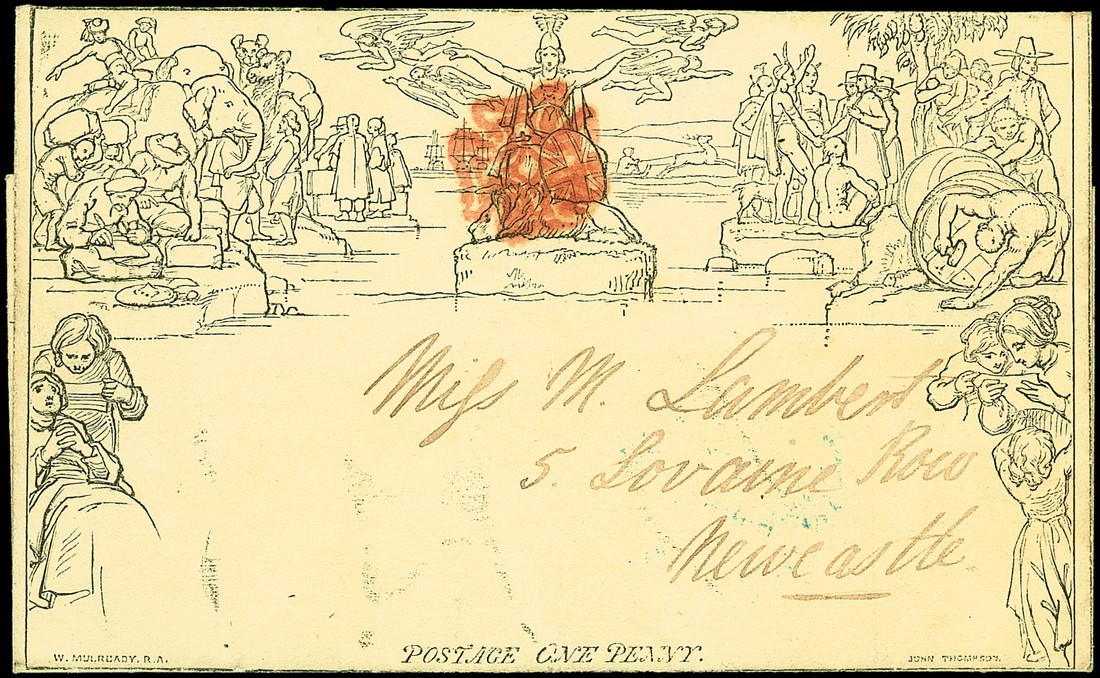 Miſs M. Lambert
5. Lovaine Row
Newcastle
W. MULREADY. R.A.
POSTAGE ONE PENNY.
JOHN THOMPSON.